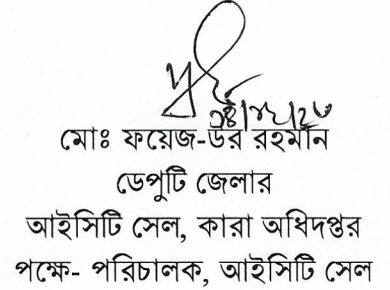 মোঃ ফয়েজ-উর রহমান
ডেপুটি জেলার
আইসিটি সেল, কারা অধিদপ্তর
পক্ষে- পরিচালক, আইসিটি সেল